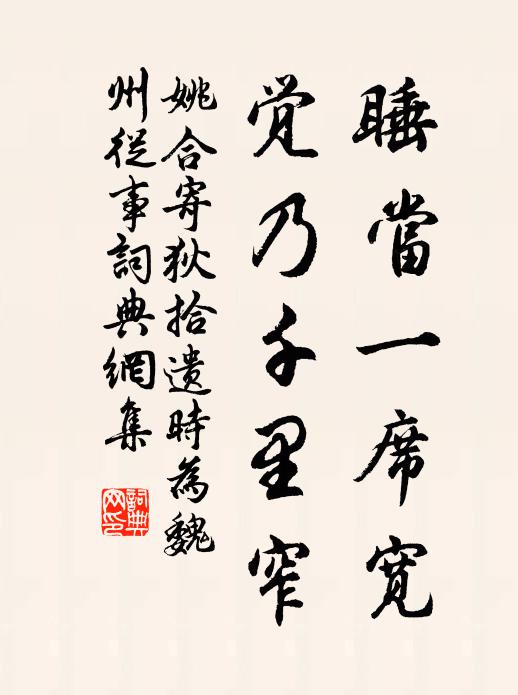 睡當一席寬
覚乃千里窄
姚合寄狄拾遺時為魏
州從事詞典網集
詞典
网印